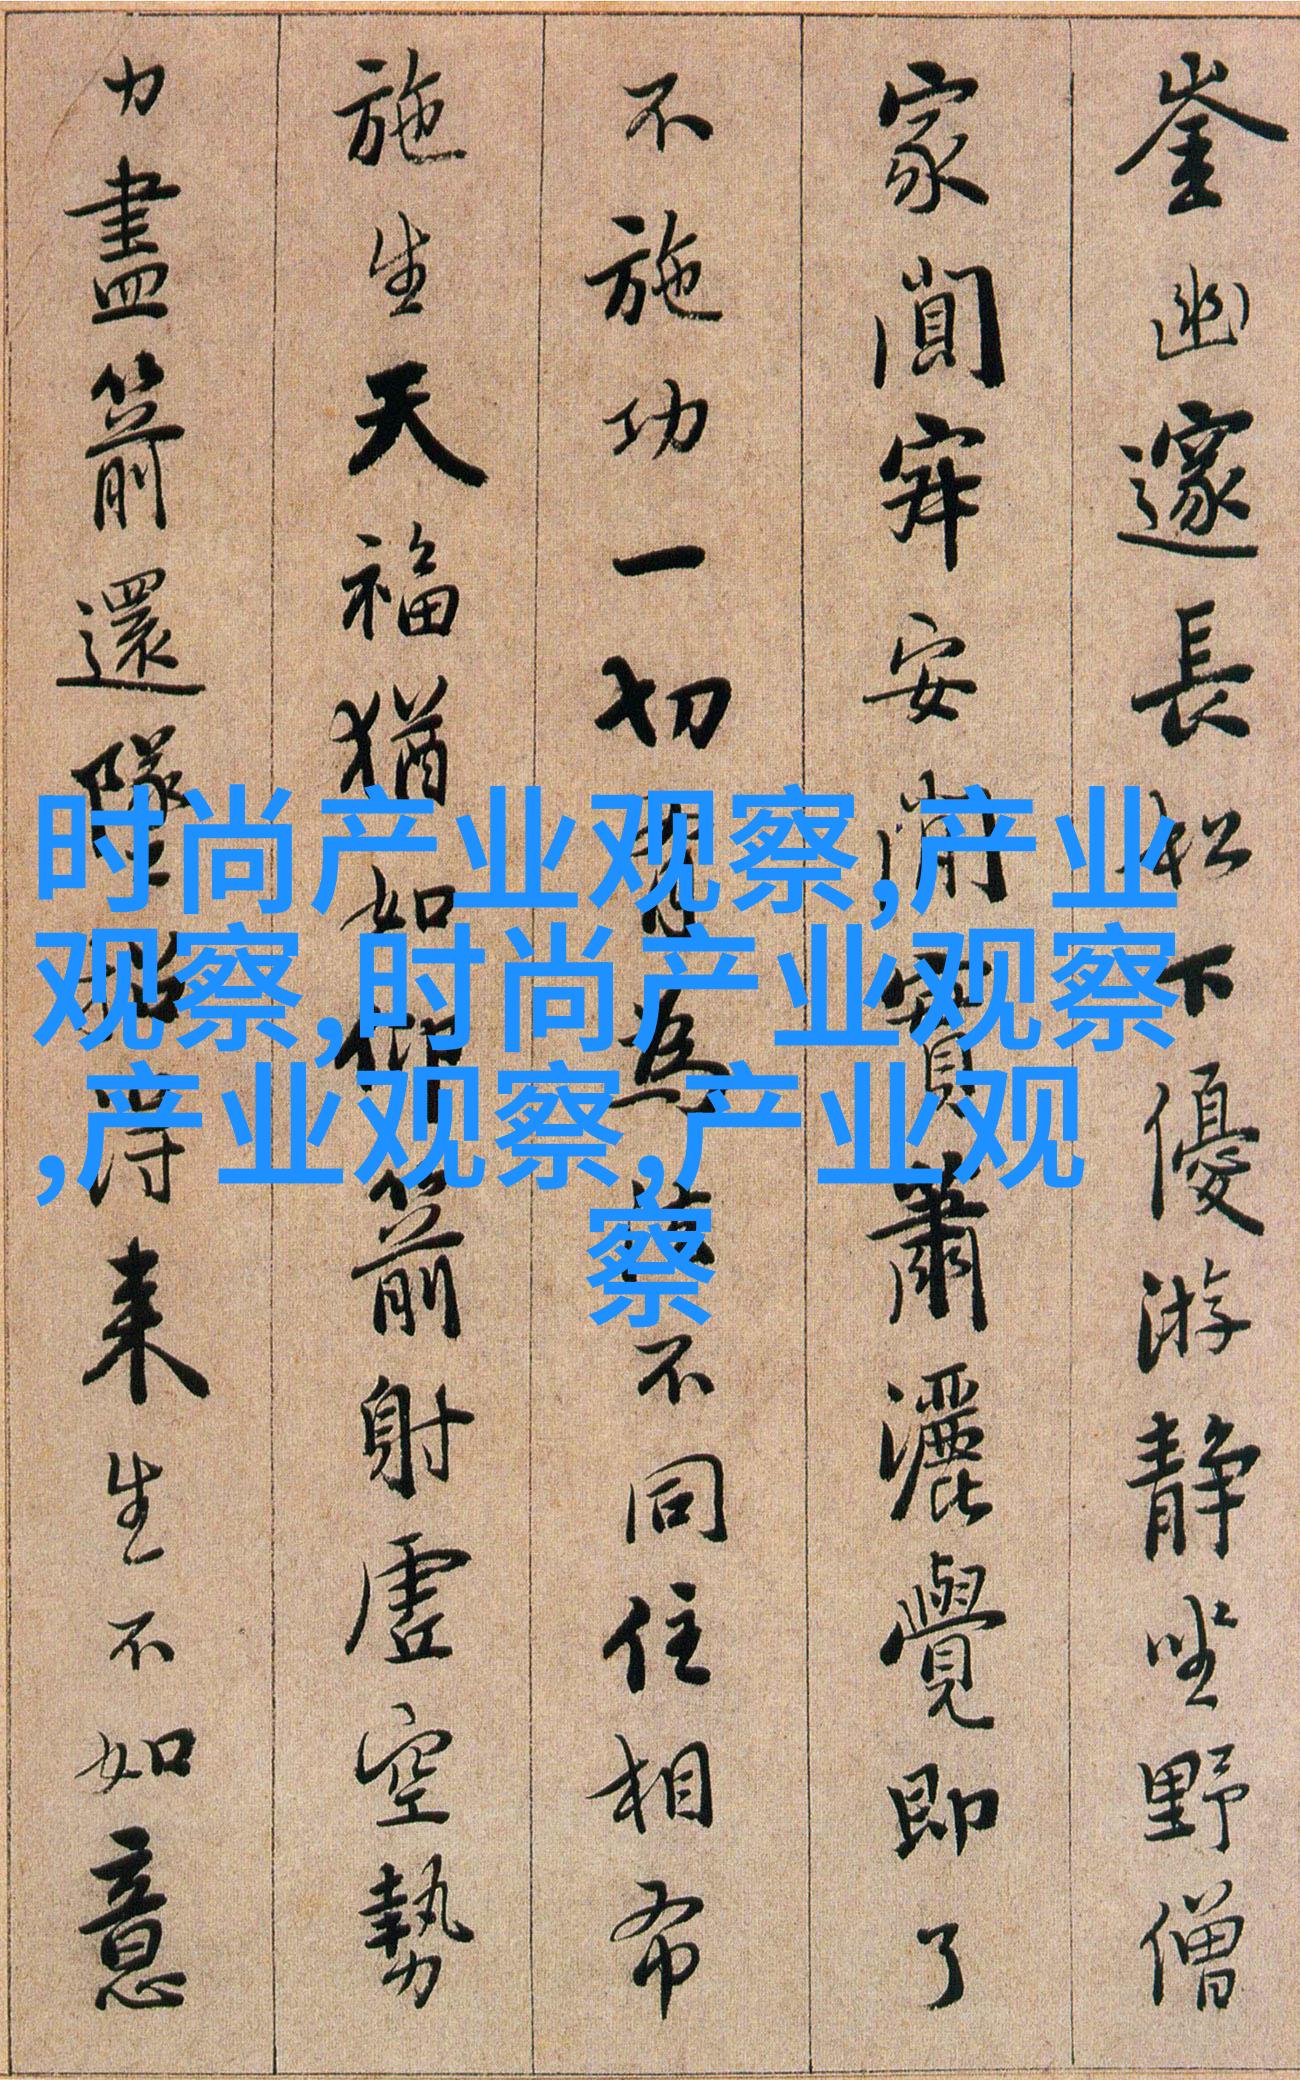 崟幽邃長松下優游静坐野僧
家闃寂安閑實蕭灑覺即了
不施功一切有為法不同住相布
施生天福猶如仰箭射虛空勢
力盡箭還墜招得来生不如意
时尚产业观察,产业
观察,时尚产业观察
,产业观察,产业观
察